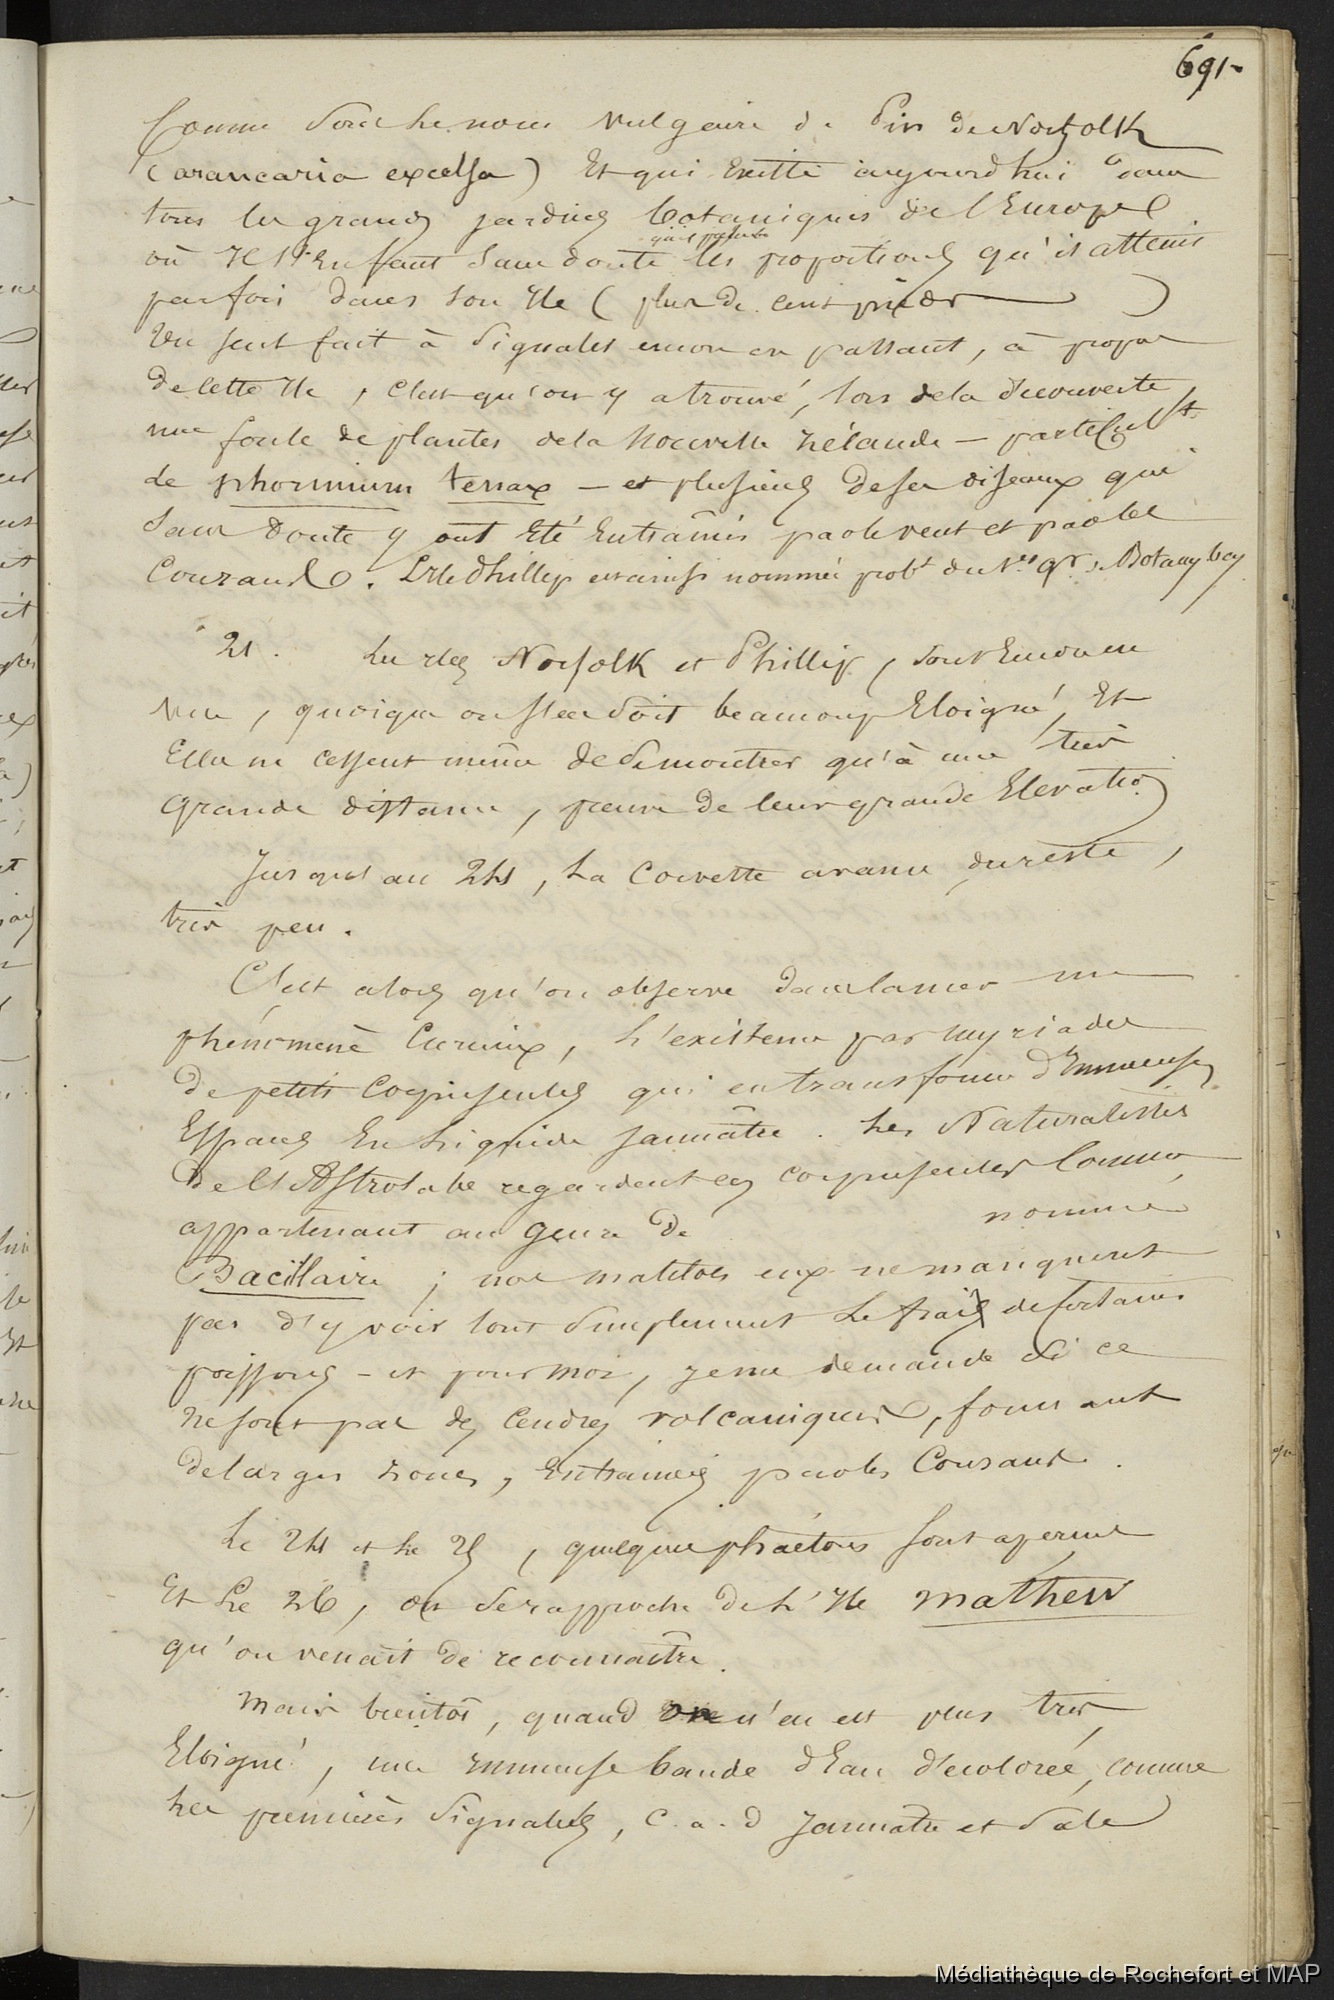 691-
Connu sous le nom vulgaire de Pin de Norfolk
(araucaria excelsa) Et qui Existe aujourd'hui dans
tous les grands jardins botaniques de l'Europe
où Il sans doute les proportions qu'il atteint
parfois dans son Ile (plus de cent pieds)
Un seul fait à signaler encore en passant, à propos
de cette Ile, c'est qu'on y a trouvé, lors de la découverte,
une foule de plantes de la Nouvelle Zélande – particult
de phormium tenax – et plusieurs de ses oiseaux qui
sans Doute y ont Eté Entraînés par le vent et par les
Courants. L'Ile Phillip est ainsi nommée probt du 1er gr, Botany bay
21. Les Iles Norfolk et Phillip, sont Encore en
vue, quoique on s'en soit beaucoup Eloigné, Et
Elles ne cessent même de se montrer qu'à une très
grande distance, preuve de leur grande Elevatio
Jusques au 24, La Corvette avance, du reste,
très peu.
C'est alors qu'on observe dans la mer un
phénomène Curieux, L'existence par myriades
de petits Corpuscules qui en transforme d'Immenses
Espaces En Liquide jaunâtre. Les Naturalistes
De l'Astrolabe regardent ces corpuscules Comme
appartenant au genre de nommé
Bacillaire ; nos matelots eux ne manquent
pas d'y voir tout simplement Le frai de certains
poissons – et pour moi, je me demande si ce
ne sont pas des Cendres volcaniques, formant
de larges zones, Entrainées par les Courants.
Le 24 et Le 25, quelques phaétons sont aperçus
Et Le 26, on se rapproche de L'Ile Mathew
qu'on venait de reconnaître.
Mais bientôt, quand on n'en est plus très
Eloigné, une Immense bande d'Eau décolorée, comme
les premières signalées, c.a.d jaunâtre et sale
Médiathèque de Rochefort et MAP